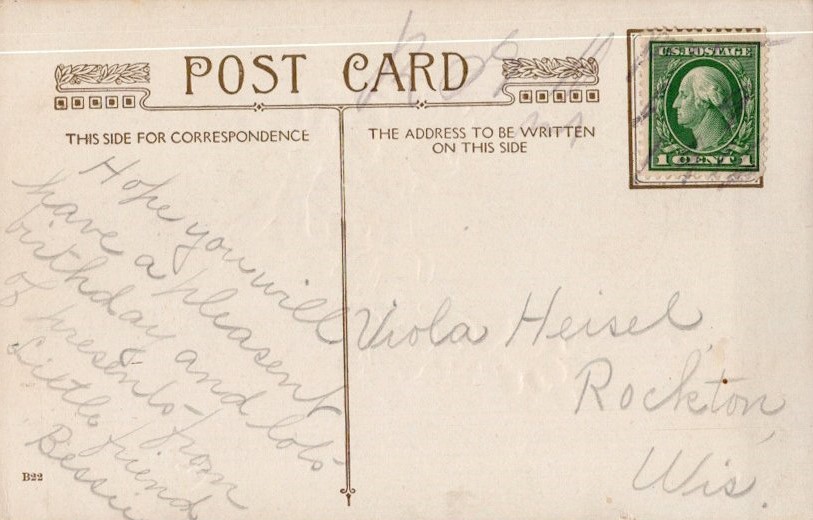 POST CARD
U.S. POSTAGE
1 CENT 1
THIS SIDE FOR CORRESPONDENCE
THE ADDRESS TO BE WRITTEN
ON THIS SIDE
Hope you will
have a pleasent
birthday and lots
of presents- from
Little friend
Bessie
Viola Heisel,
Rockton,
Wis.
B22